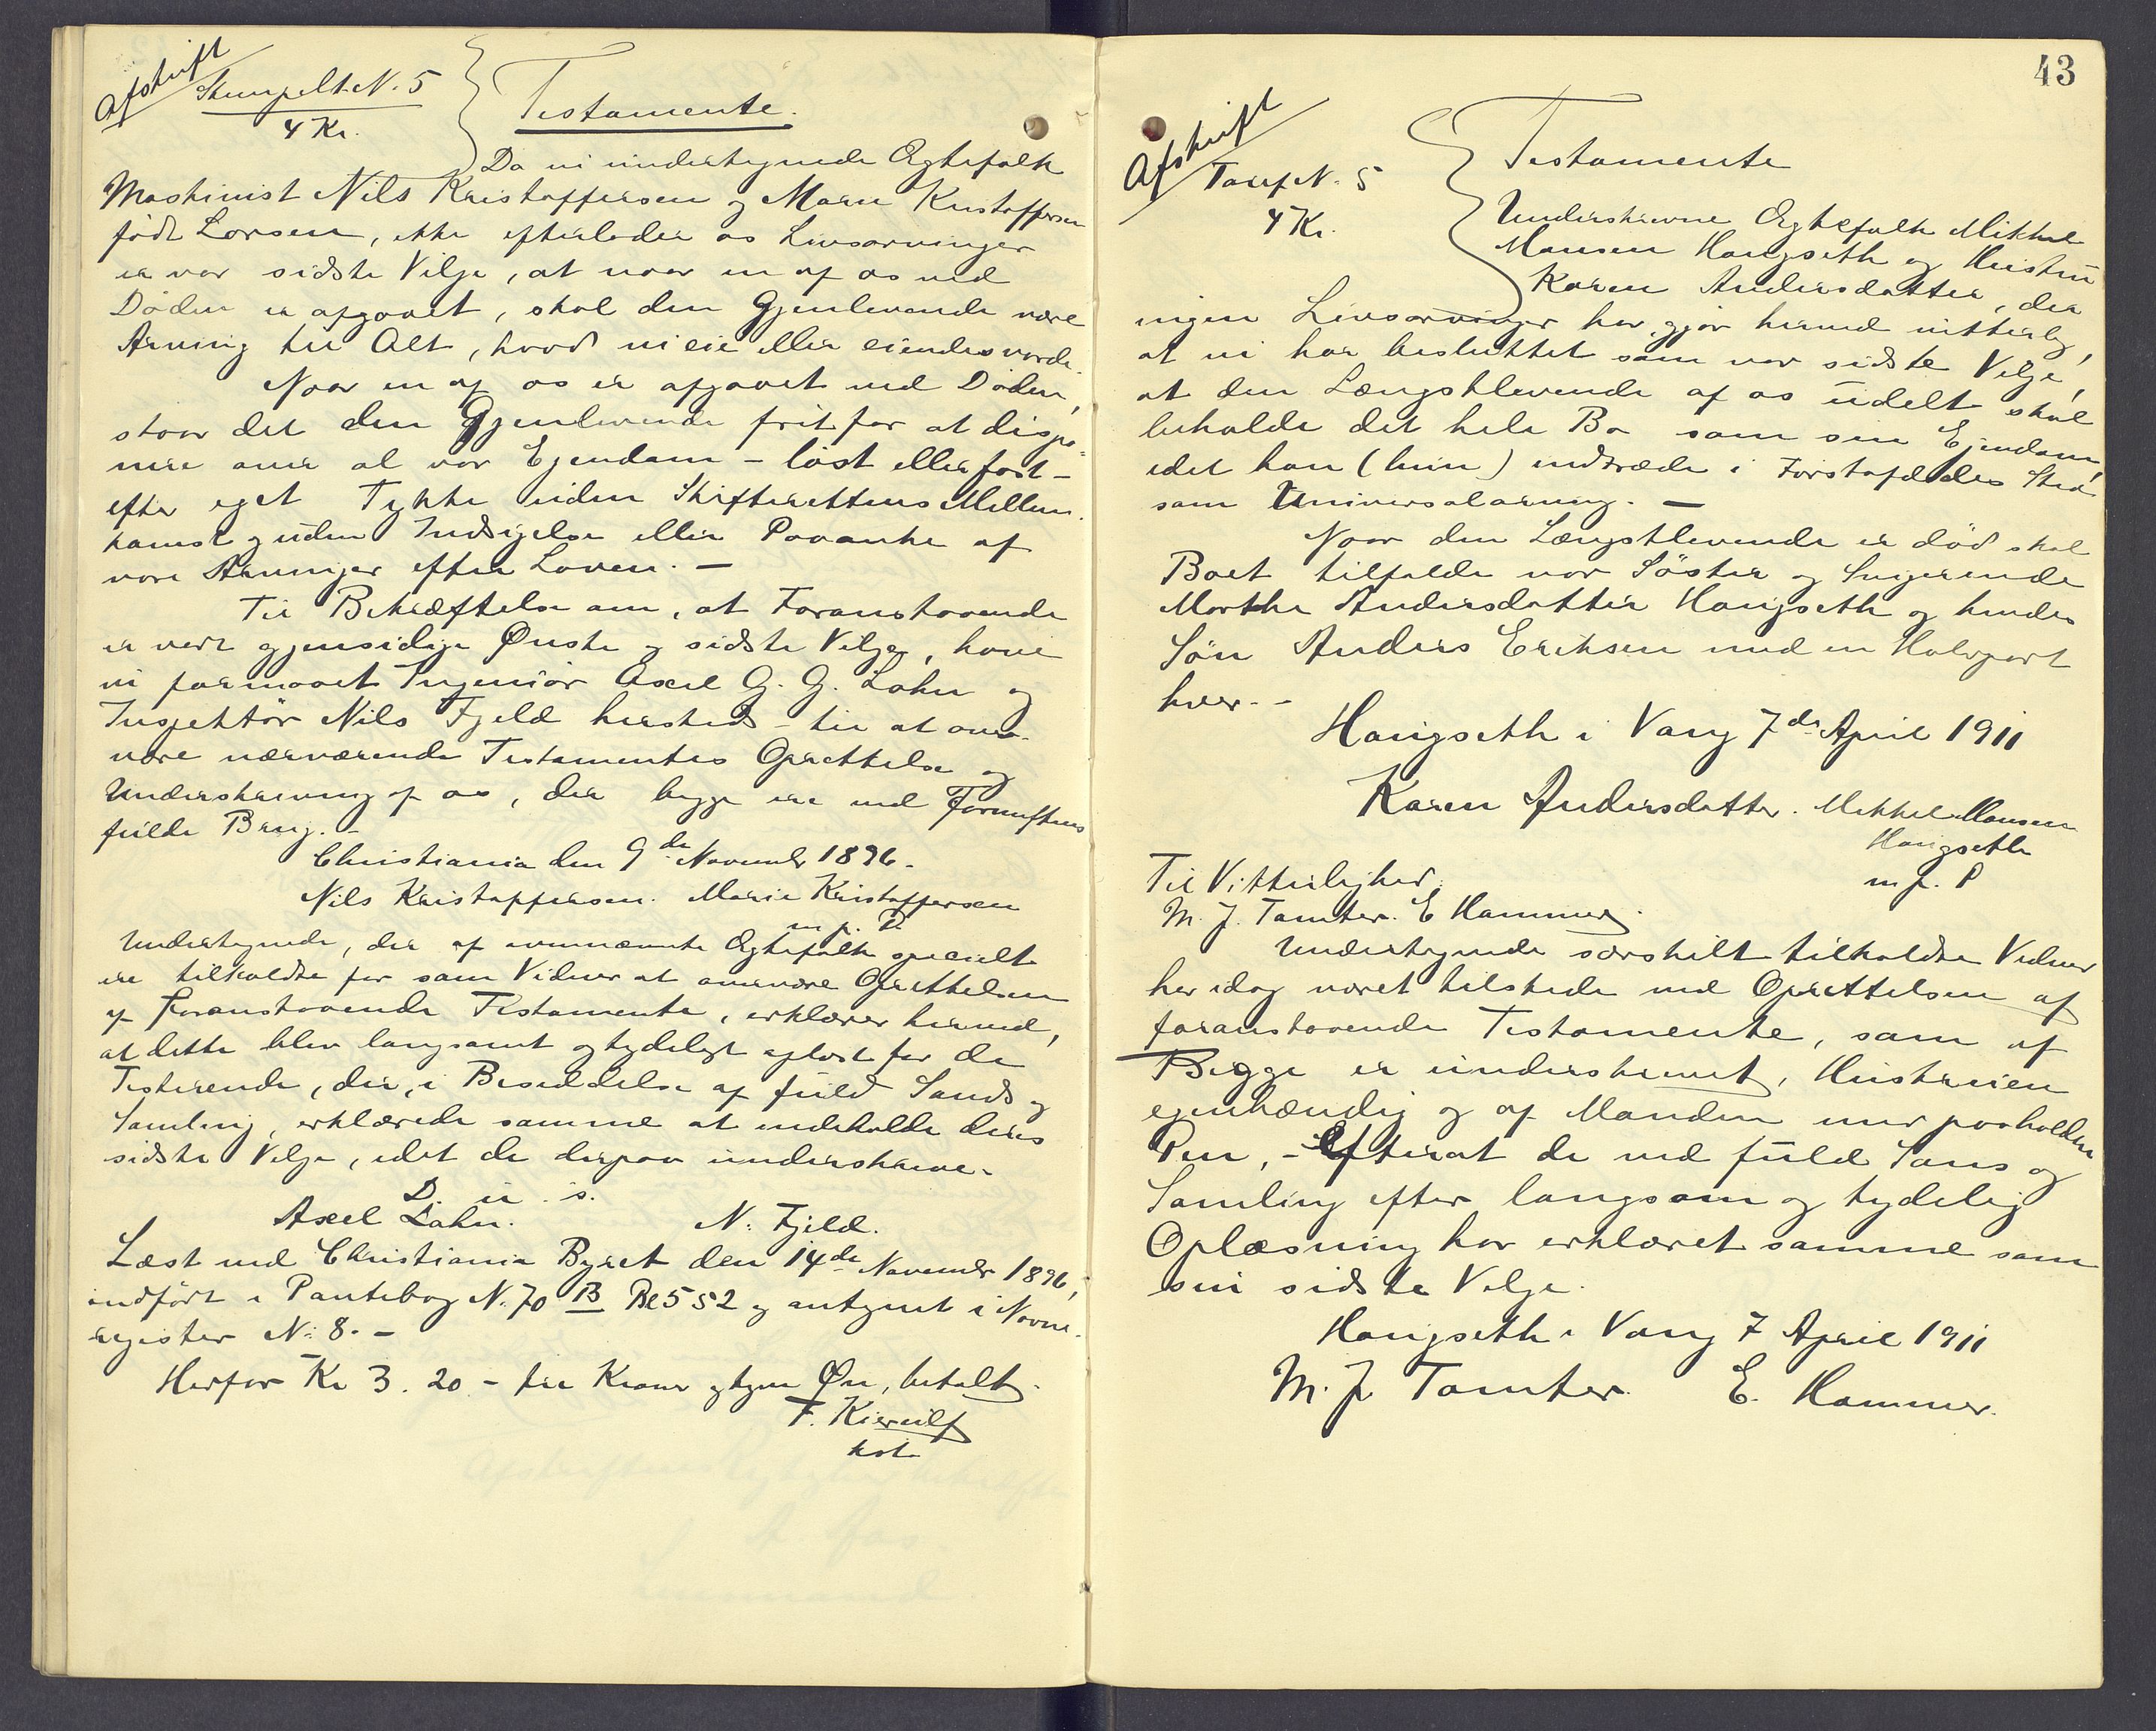 Afskrift
Stempelt. N. 5
4 Kr.
Testamente.
Da vi undertegnede Ægtefolk
Maskinist Nils Kristoffersen og Marie Kristoffersen
født Larsen, ikke efterlader os Livsarvinger
er vor sidste Vilje, at naar en af os ved
Döden er afgaaet, skal den Gjenlevende være
Arving til Alt, hvad vi eie eller eiendes vorde.
Naar en af os er afgaaet ved Döden,
staar det den Gjenlevende frit for at dispo-
nere over al vor Ejendom - löst eller fast -
efter eget Tykke uden Skifterettens Mellem-
komst og uden Indsigelse eller Paaanke af
vore Arvinger efter Loven. -
Til Bekræftelse om, at Foranstaaende
er vort gjensidige Ønske og sidste Vilje, have
vi formaaet Ingeniör Axel G. G. Lahn og
Inspektör Nils Fjeld hersteds til at over-
være nærværende Testamentes Oprettelse og
Underskrivning af os, der begge ere ved Fornuftens
fulde Brug. -
Christiania den 9de November 1896.
Nils Kristoffersen. Marie Kristoffersen
m. p. P.
Undertegnede, der af ovennævnte Ægtefolk specielt
ere tilkaldte for som Vidner at overvære Oprettelsen
af foranstaaende Testamente, erklærer herved,
at dette blev langsomt og tydeligt oplæst for de
Testerende, der, i Besiddelse af fuld Sands og
Samling, erklærede samme at indeholde deres
sidste Vilje, idet de derpaa underskrive.
D. u. s.
Axel Lahn. N. Fjeld.
Læst ved Christiania Byret den 14de November 1896,
indfört i Pantebog N. 70 B Bl 552 og antegnet i Navne-
register N: 8. -
Herfor Kr 3.20 - tre Kroner og tyve Øre, betalt.
F. Kierulf
kst.
43
Afskrift
Taxf. N. 5
4 Kr.
Testamente
Underskrevne Ægtefolk Mikkel
Hansen Haugseth og Hustru
Karen Andersdatter, der
ingen Livsarvinger har, gjör herved vitterlig,
at vi har besluttet som vor sidste Vilje,
at den Længstlevende af os udelt skal
beholde det hele Bo som sin Ejendom,
idet han (hun) indtræder i Förstafdödes Sted
som Universalarving. -
Naar den Længstlevende er död skal
Boet tilfalde vor Söster og Svigerinde
Marthe Andersdatter Haugseth og hendes
Sön Anders Eriksen med en Halvpart
hver. -
Haugseth i Vang 7de April 1911
Karen Andersdatter. Mikkel Hansen
Haugseth
m. p. P
Til Vitterlighed.
M. J. Tamter. E Hammer.
Undertegnede særskilt tilkaldte Vidner
har idag været tilstede ved Oprettelsen af
foranstaaende Testamente, som af
Begge er underskrevet, Hustruen
egenhændig og af Manden med paaholden
Pen, - efterat de ved fuld Sans og
Samling efter langsom og tydelig
Oplæsning har erklæret samme som
sin sidste Vilje.
Haugseth i Vang 7 April 1911
M. J. Tamter. E. Hammer.